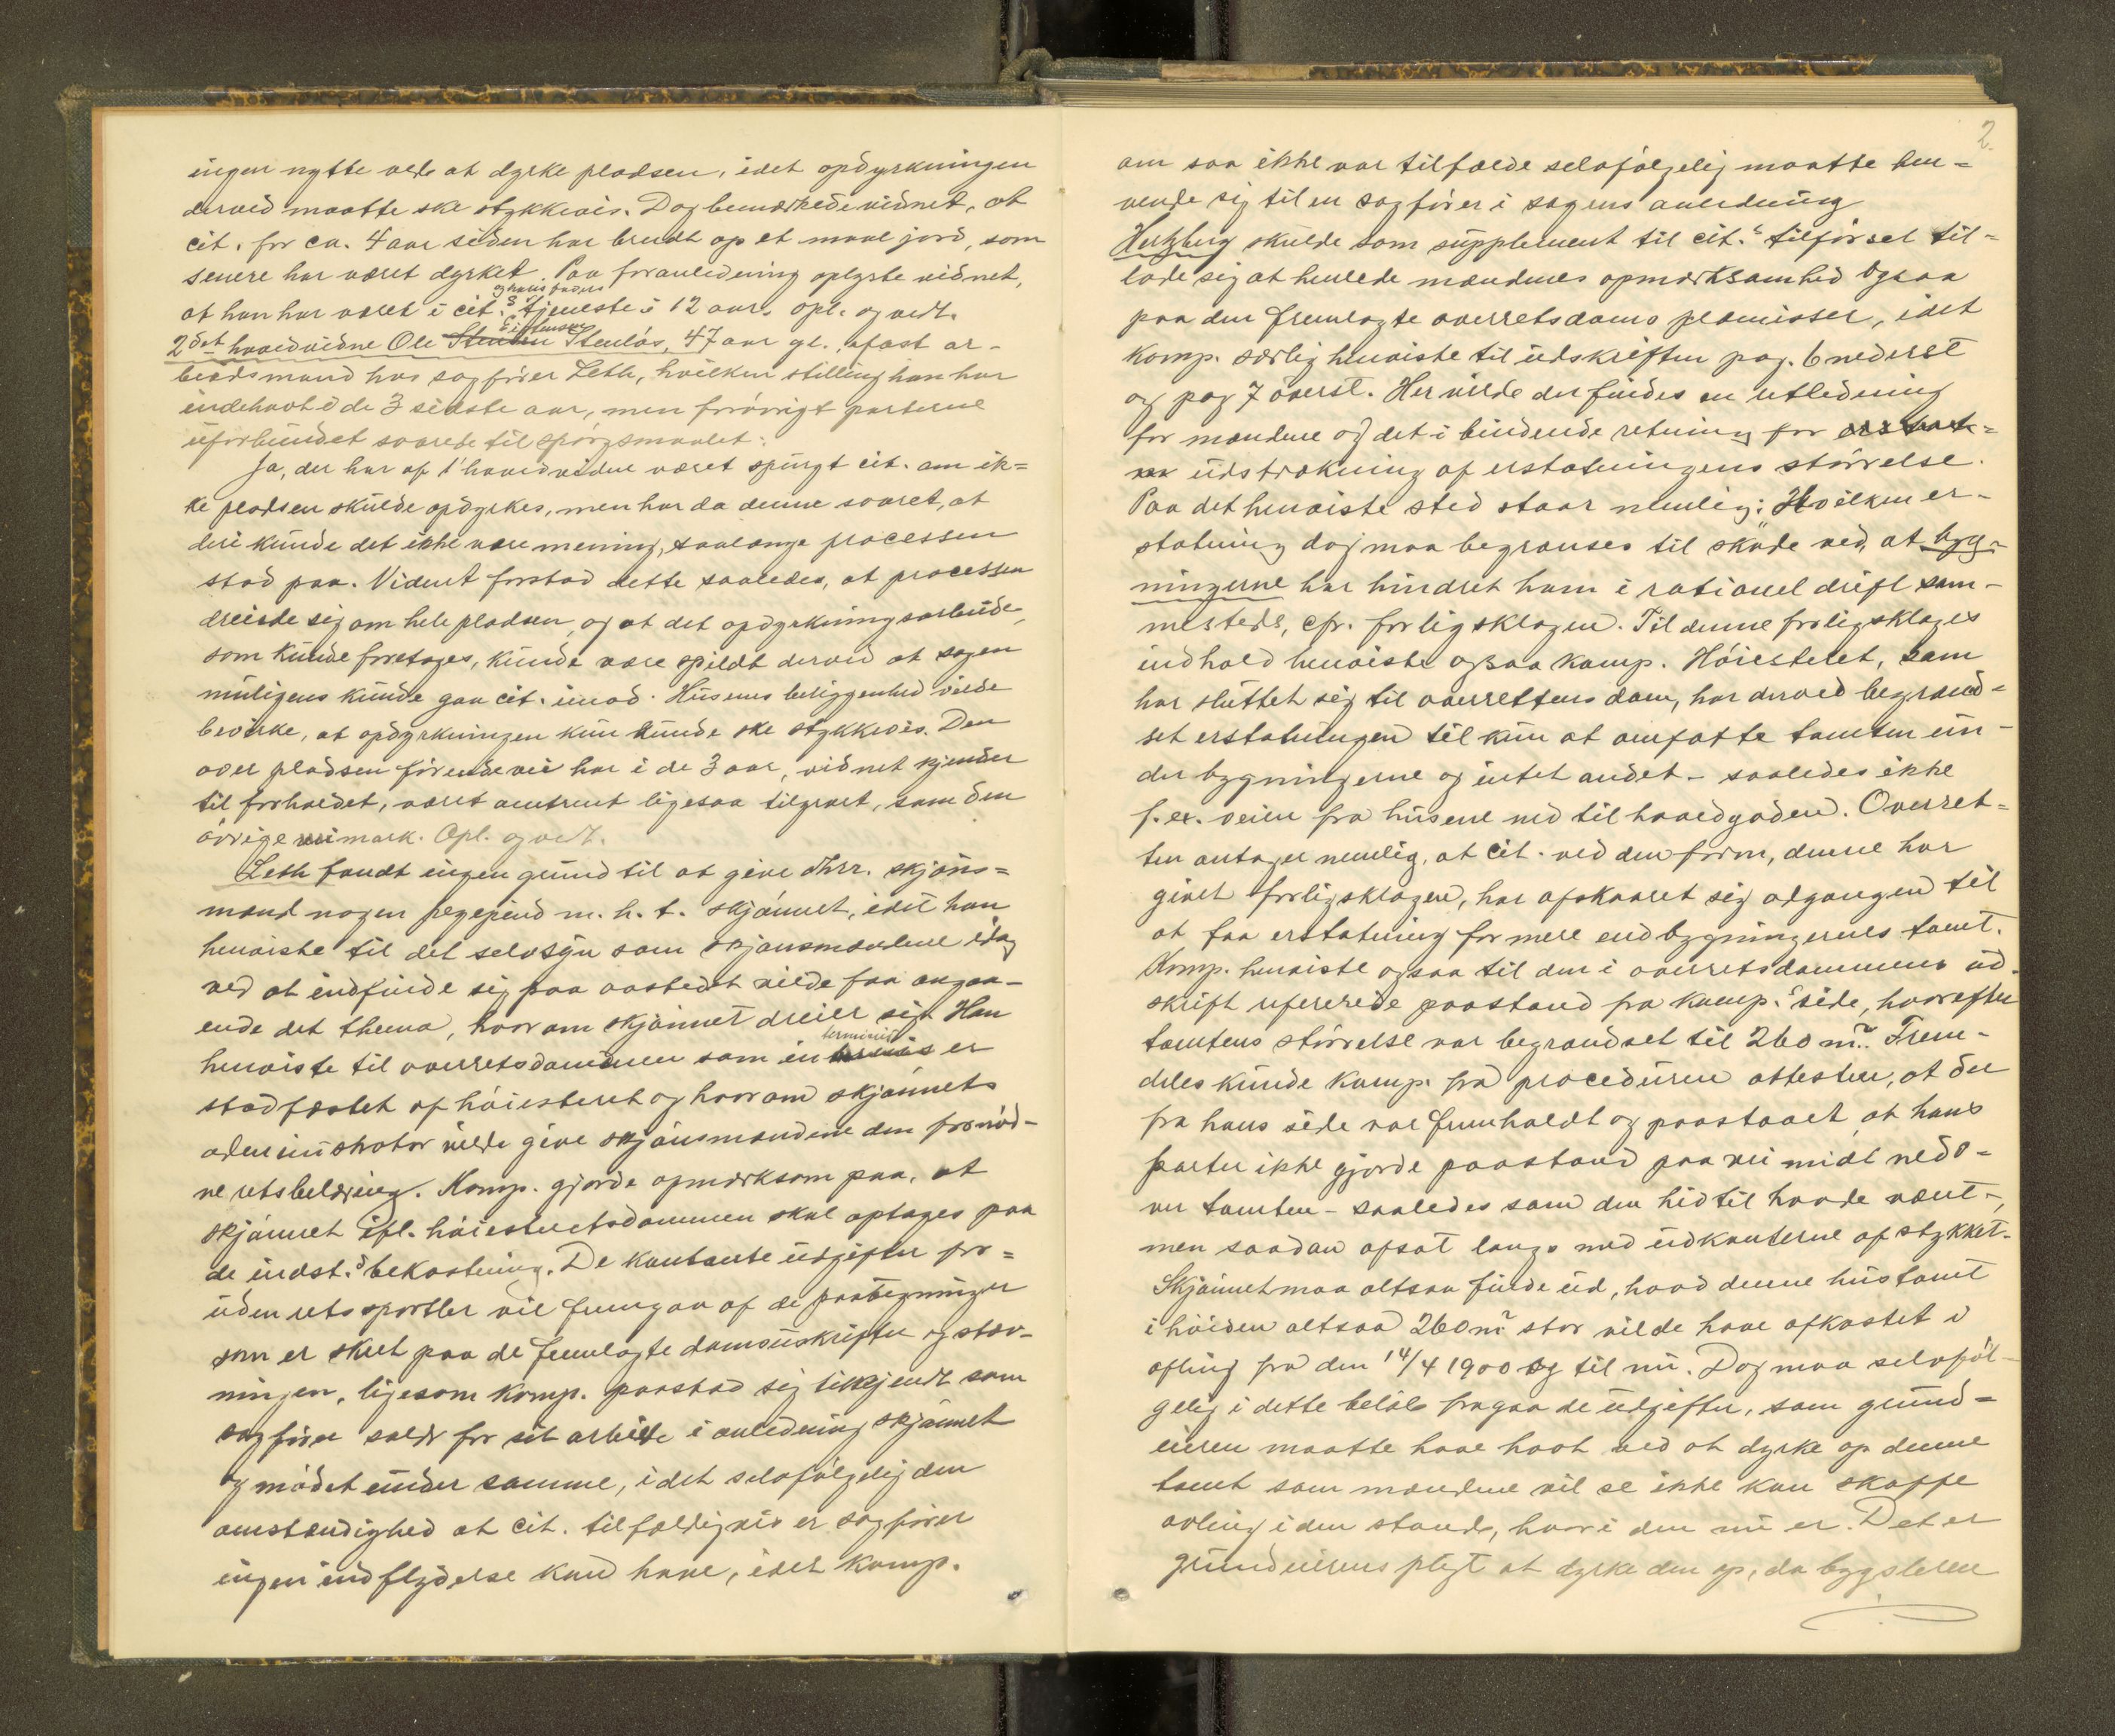 ingen nytte vilde at dyrke pladsen, idet opdyrkningen
derved maatte ske stykkevis. Dog bemærkede vidnet, at
cit. for ca. 4 aar siden har brudt op et maal jord, som
senere har været dyrket. Paa foranledning oplyste vidnet,
og hans faders
at han har været i cit.s tjeneste i 12 aar. Opl. og vedt.
2det hovedvidne Ole Stenlås, 47 aar gl., fast ar-
beidsmand hos sagfører Leth, hvilken stilling han har
indehavt i de 3 sidste aar, men forøvrigt parterne
uforbundet svarede til spørgsmaalet:
Ja, der har af 1' hovedvidne været spurgt cit. om ik=
ke pladsen skulde opdyrkes, men har da denne svaret, at
deri kunde det ikke være mening, saalænge processen
stod paa. Vidnet forstod dette saaledes, at processen
dreiede sig om hele pladsen, og at det opdyrkningsarbeide,
som kunde foretages, kunde være spildt derved at sagen
muligens kunde gaa cit. imod. Husenes beliggenhed vilde
bevirke, at opdyrkningen kun kunde ske stykkevis. Den
over pladsen førende vei har i de 3 aar, vidnet kjender
til forholdet, været omtrent ligesaa tilgroet, som den
øvrige mark. Opl. og vedt.
Leth fandt ingen grund til at give dhrr. skjøns=
mænd nogen pegepind m. h. t. skjønnet, idet han
henviste til det selvsyn som skjønsmændene idag
ved at indfinde sig paa aastedet vilde faa angaa-
ende det thema, hvorom skjønnet dreier sig. Han
terminis
henviste til overretsdommen som in er
stadfæstet af høiesteret og hvorom skjønnets
administrator vilde give skjønsmændene den fornød-
ne retsbelæring. Komp. gjorde opmerksom paa, at
skjønnet ifl. høiesteretsdommen skal optages paa
de indst.s bekostning. De kontante udgifter for=
uden retssportler vil fremgaa af de paategninger
som er skeet paa de fremlagte domsudskrifter og stæv-
ningen, ligesom komp. paastod sig tilkjendt som
sagfører salær for sit arbeide i anledning skjønnet
og mødet under samme, idet selvfølgelig den
omstændighed at cit. tilfældigvis er sagfører
ingen indflydelse kan have, idet komp.
2.
om saa ikke var tilfælde selvfølgelig maatte hen=
vende sig til en sagfører i sagens anledning
Hertzberg skulde som supplement til cit.s tilførsel til=
lade sig at henlede mændenes opmærksamhed ogsaa
paa den fremlagte overretsdoms præmisser, idet
komp. særlig henviste til udskriften pag. 6 nederst
og pag 7 øverst. Her vilde der findes en veiledning
for mændene og det i bindende retning for
udstrækning af erstatningens størrelse.
Paa det henviste sted staar nemlig: "Hvilken er-
statning dog maa begrænses til skade ved, at byg-
ningerne har hindret ham i rationel drift sam-
mesteds, cfr. forligsklagen. Til denne forligsklages
indhold henviste ogsaa komp. Høiesteret, som
har sluttet sig til overrettens dom, har derved begrænd=
set erstatningen til kun at omfatte tomten un-
der bygningerne og intet andet – saaledes ikke
f. ex. veien fra husene ned til hovedgaden. Overret=
ten antager nemlig, at cit. ved den form, denne har
givet forligsklagen, har afskaaret sig adgangen til
at faa erstatning for mere end bygningernes tomt.
Komp. henviste ogsaa til den i overretsdommens ud-
skrift refererede paastand fra komp.s side, hvorefter
tomtens størrelse var begrændset til 260 m². Frem-
deles kunde komp. fra proceduren attestere, at der
fra hans side var fremholdt og paastaaet, at hans
parter ikke gjorde paastand paa vei midt nedo=
ver tomten – saaledes som den hidtil havde været –,
men saadan afsat langs med udkanterne af stykket.
Skjønnet maa altsaa finde ud, hvad denne hustomt
i høiden altsaa 260 m² stor vilde have afkastet i
avling fra den 14/4 1900 og til nu. Dog maa selvføl-
gelig i dette beløb fragaa de udgifter, som grund=
eieren maatte have havt ved at dyrke op denne
tomt som mændene vil se ikke kan skaffe
avling i den stand, hvori den nu er. Det er
grundeierens pligt at dyrke den op, da bygsleren